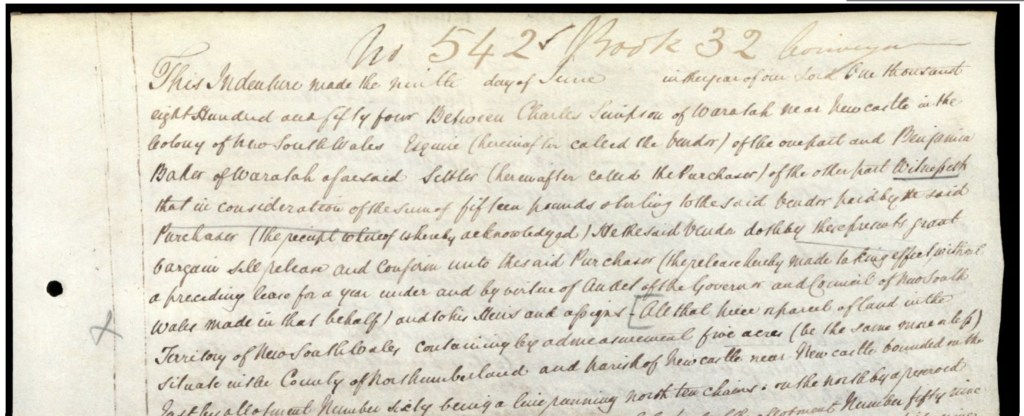 No 542 Book 32 Conveyan
This Indenture made the ninth day of June in the year of our Lord One thousand
eight Hundred and fifty four Between Charles Simpson of Waratah near Newcastle in the
Colony of New South Wales Esquire (hereinafter called the Vendor) of the one part and Benjamin
Baker of Waratah aforesaid Settler (hereinafter called the Purchaser) of the other part Witnesseth
that in consideration of the sum of fifteen pounds sterling to the said Vendor paid by the said
Purchaser (the receipt whereof is hereby acknowledged) He the said Vendor doth by these presents grant
bargain sell release and Confirm unto the said Purchaser (the release hereby made taking effect without
a preceding lease for a year under and by virtue of an Act of the Governor and Council of New South
Wales made in that behalf) and to his Heirs and assigns [All that piece or parcel of land in the
Territory of New South Wales containing by admeasurement five acres (be the same more or less)
situate in the County of Northumberland and parish of Newcastle near Newcastle bounded on the
East by allotment Number sixty being a line running north ten chains on the north by a reserved
allotment Number fifty nine